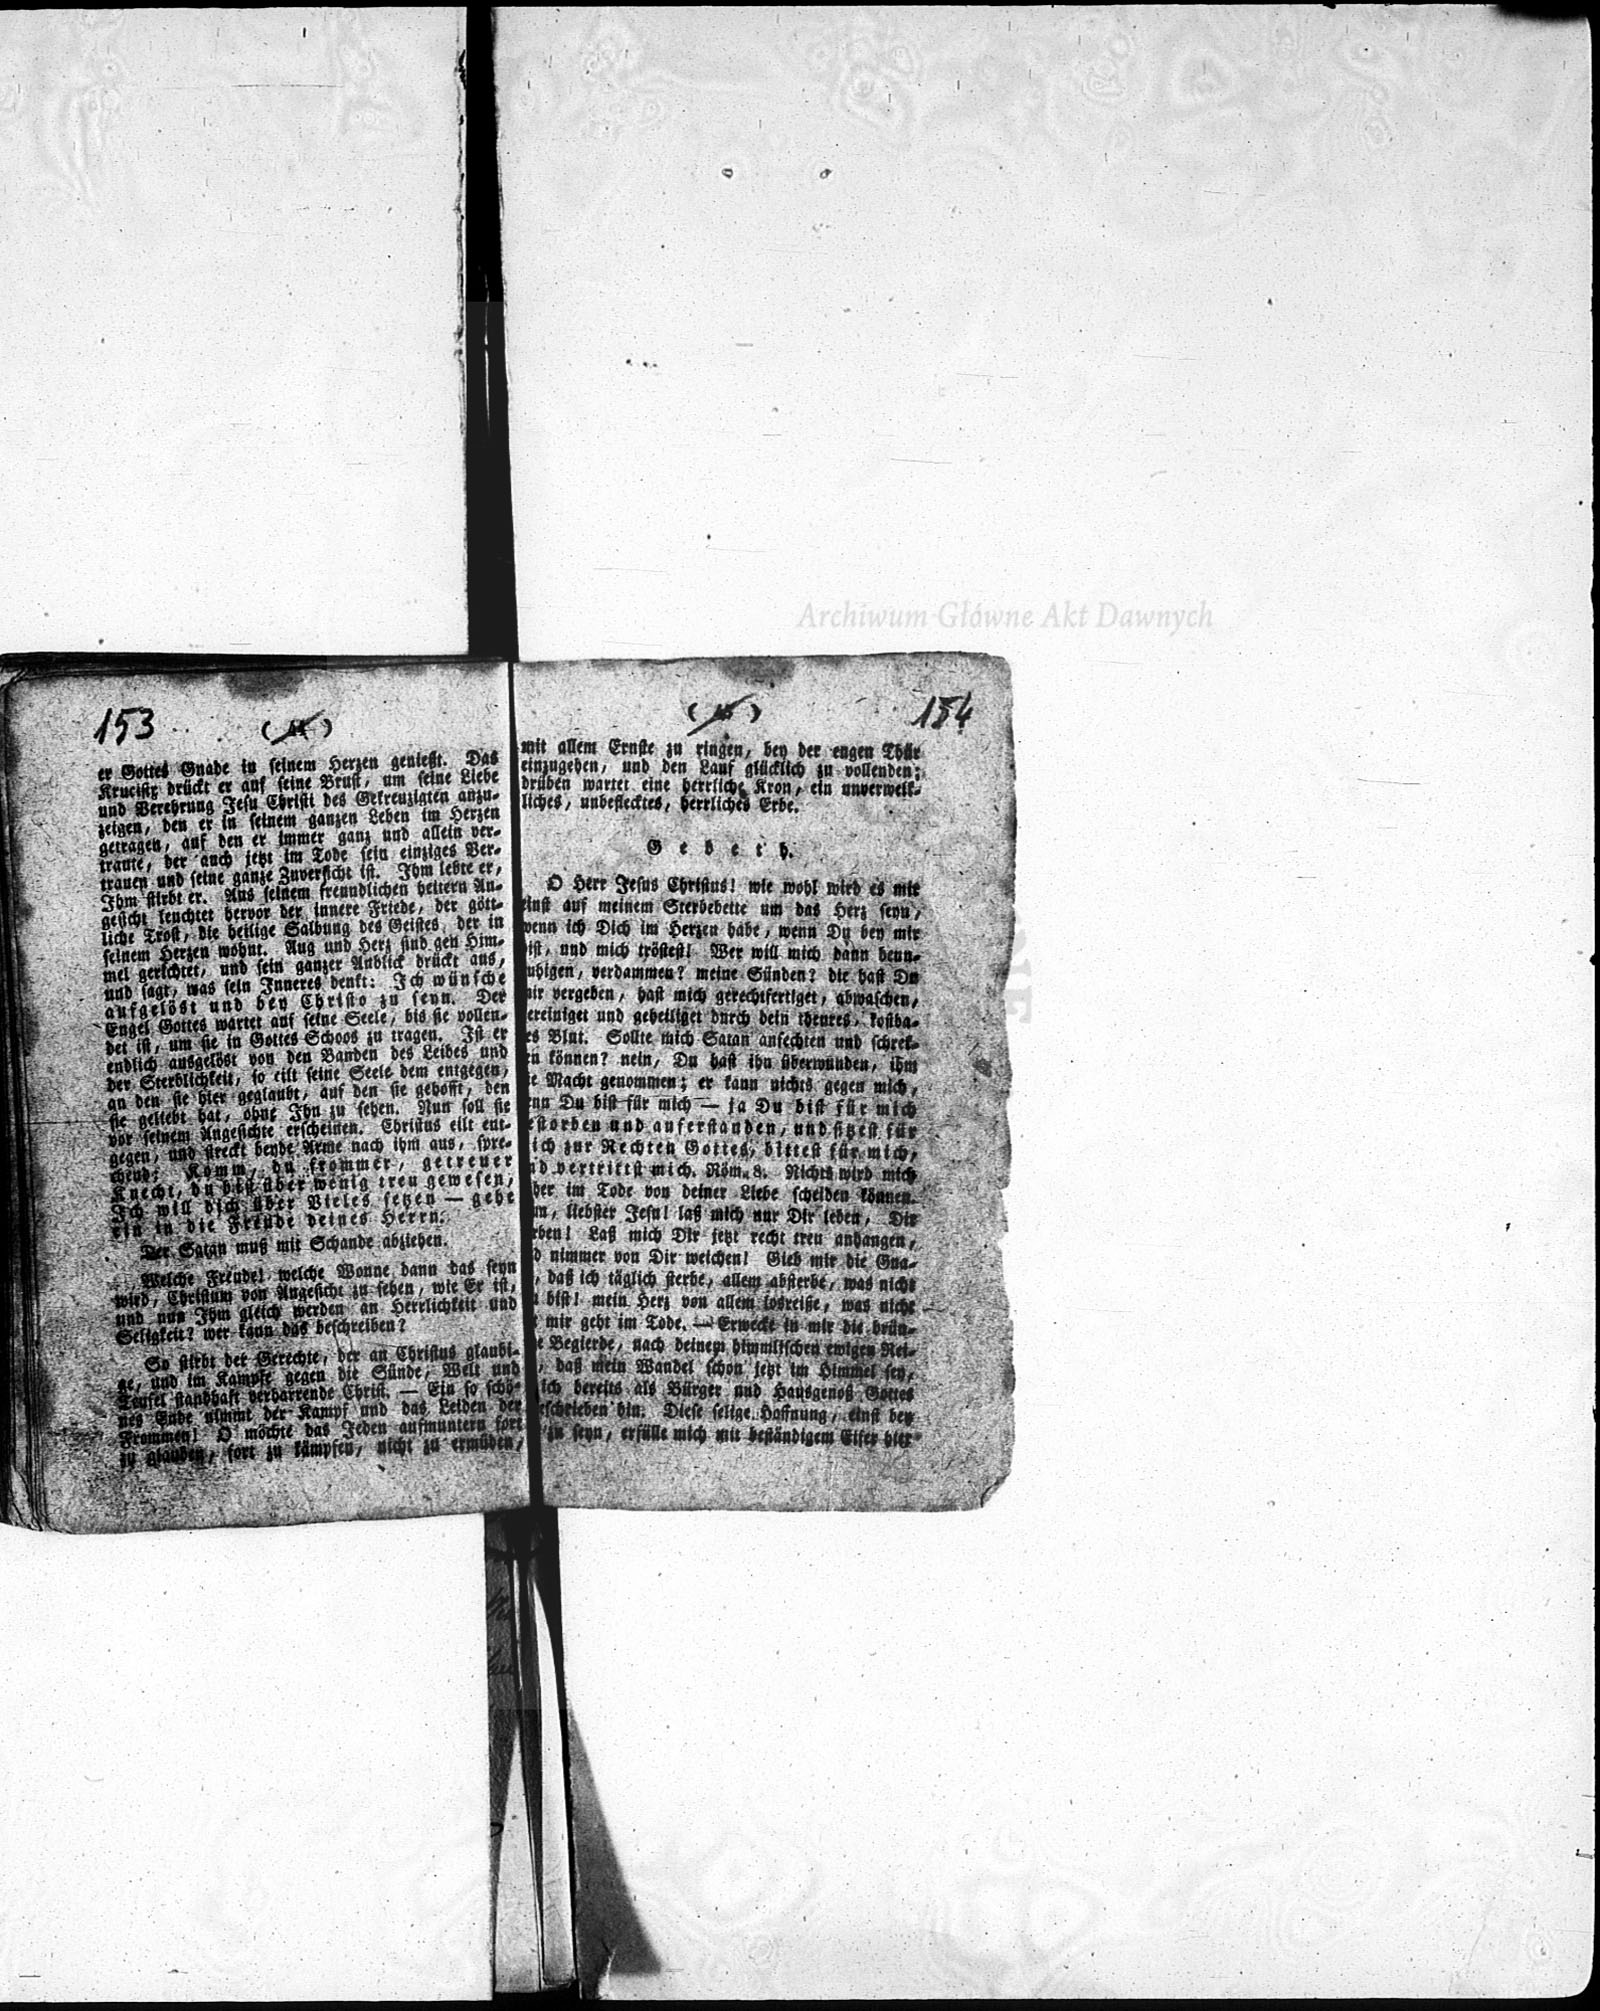 153
er Gottes Gnade in seinem Herzen genießt. Das
Krucifix drückt er auf seine Brust, um seine Liebe
und Verehrung Jesu Christi des Gekreuzigten anzu-
zeigen, den er in seinem ganzen Leben im Herzen
getragen, auf den er immer ganz und allein ver-
traute, der auch jetzt im Tode sein einziges Ver-
trauen und seine ganze Zuversicht ist. Ihm lebte er,
Ihm stirbt er. Aus seinem freundlichen heitern An-
gesicht leuchtet hervor der innere Friede, der gött-
liche Trost, die heilige Salbung des Geistes, der in
seinem Herzen wohnt. Aug und Herz sind gen Him-
mel gerichtet, und sein ganzer Anblick drückt aus,
und sagt, was sein Inneres denkt: Ich wünsche
aufgelöst und bey Christo zu seyn. Der
Engel Gottes wartet auf seine Seele, bis sie vollen-
det ist, um sie in Gottes Schoos zu tragen. Ist er
endlich ausgelöst von den Banden des Leibes und
der Sterblichkeit, so eilt seine Seele dem entgegen,
an den sie hier geglaubt, auf den sie gehofft, den
sie geliebt hat, ohne Ihn zu sehen. Nun soll sie
vor seinem Angesichte erscheinen. Christus eilt ent-
gegen, und streckt beyde Arme nach ihm aus, spre-
chend: Komm, du frommer, getreuer
Knecht, du bist über wenig treu gewesen,
Ich will dich über Vieles setzen — gehe
ein in die Freude deines Herrn.
Der Satan muß mit Schande abziehen.
Welche Freude! welche Wonne dann das seyn
wird, Christum von Angesicht zu sehen, wie Er ist,
und nun Ihm gleich werden an Herrlichkeit und
Seligkeit? wer kann das beschreiben?
So stirbt der Gerechte, der an Christus glaubi-
ge, und im Kampfe gegen die Sünde, Welt und
Teufel standhaft verharrende Christ. — Ein so schö-
nes Ende nimmt der Kampf und das Leiden der
Frommen! O möchte das Jeden aufmuntern fort
zu glauben, fort zu kämpfen, nicht zu ermüden,
154
mit allem Ernste zu ringen, bey der engen Thür
einzugehen, und den Lauf glücklich zu vollenden;
drüben wartet eine herrliche Kron, ein unverwelk-
liches, unbeflecktes, herrliches Erbe.
Gebeth.
O Herr Jesus Christus! wie wohl wird es mir
einst auf meinem Sterbebette um das Herz seyn,
wenn ich Dich im Herzen habe, wenn Du bey mir
bist, und mich tröstest! Wer will mich dann beun-
uhigen, verdammen? meine Sünden? die hast Du
mir vergeben, hast mich gerechtfertiget, abwaschen,
ereiniget und geheiliget durch dein theures, kostba-
es Blut. Sollte mich Satan anfechten und schrek-
en können? nein, Du hast ihn überwunden, ihm
ie Macht genommen; er kann nichts gegen mich,
enn Du bist für mich — ja Du bist für mich
estorben und auferstanden, und sitzest für
ich zur Rechten Gottes, bittest für mich,
nd vertrittst mich. Röm. 8. Nichts wird mich
ber im Tode von deiner Liebe scheiden können.
un, liebster Jesu! laß mich nur Dir leben, Dir
rben! Laß mich Dir jetzt recht treu anhangen,
d nimmer von Dir weichen! Gieb mir die Gna-
, daß ich täglich sterbe, allem absterbe, was nicht
u bist! mein Herz von allem losreiße, was nicht
t mir geht im Tode. — Erwecke in mir die brün-
e Begierde, nach deinem himmlischen ewigen Rei-
, daß mein Wandel schon jetzt im Himmel sey,
ich bereits als Bürger und Hausgenoß Gottes
eschrieben bin. Diese selige Hoffnung, einst bey
zu seyn, erfülle mich mit beständigem Eifer hier
Archiwum Główne Akt Dawnych